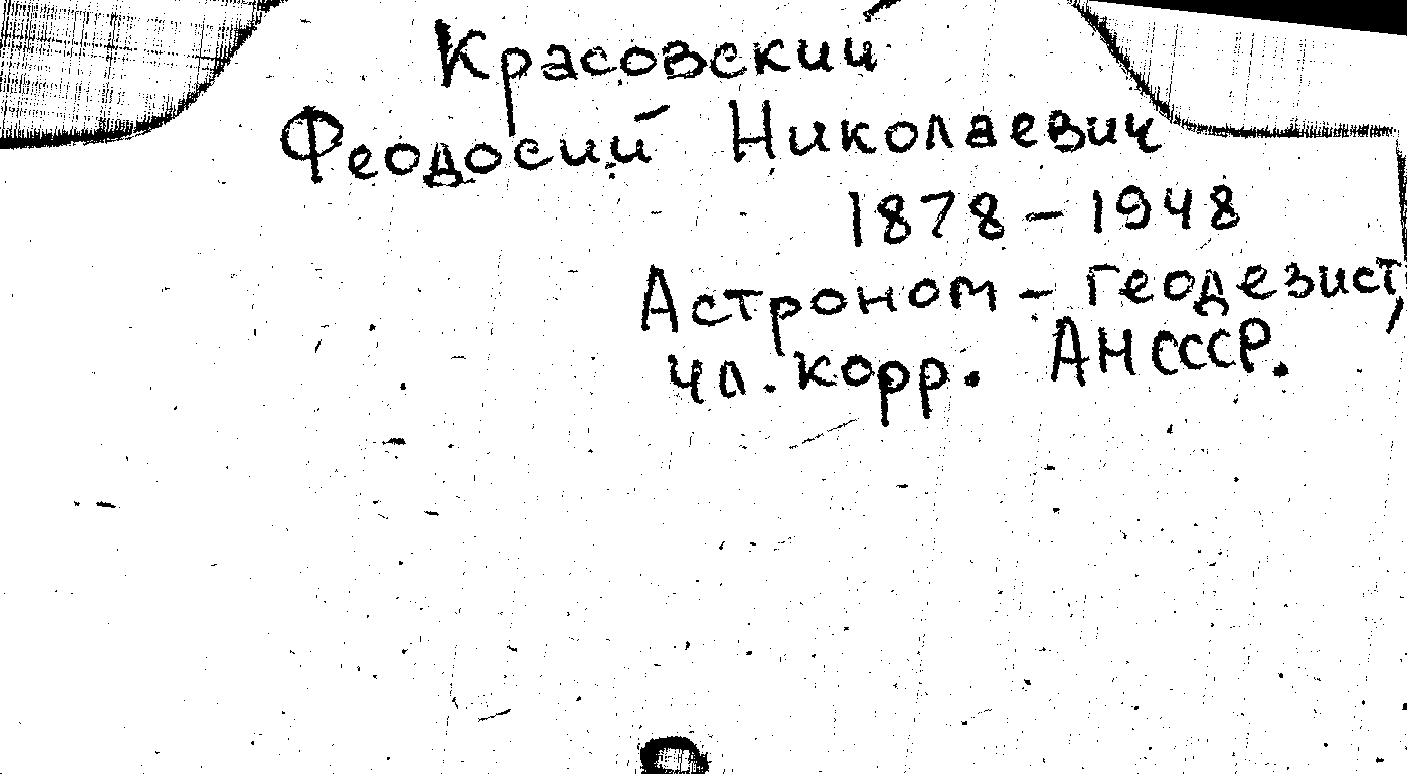 Красовский
Феодосий Николаевич
1878 - 1948
Астроном - геодезист,
чл. корр. АН СССР.